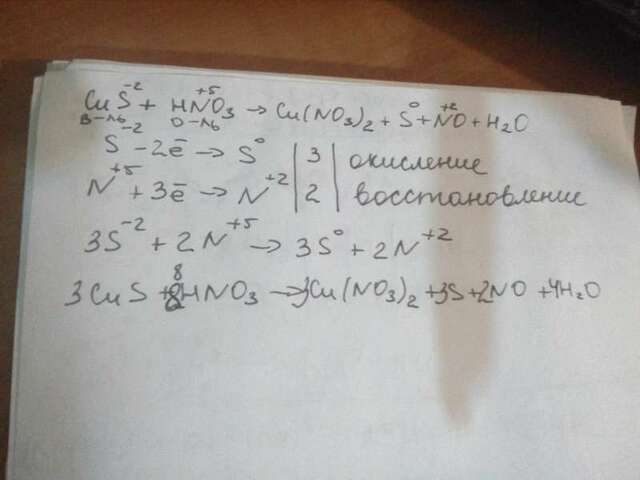 CuS⁻² + HN⁺⁵O₃ → Cu(NO₃)₂ + S⁰ + N⁺²O + H₂O
в-ль о-ль
S⁻² - 2ē → S⁰ | 3 | окисление
N⁺⁵ + 3ē → N⁺² | 2 | восстановление
3S⁻² + 2N⁺⁵ → 3S⁰ + 2N⁺²
3CuS + 8HNO₃ → 3Cu(NO₃)₂ + 3S + 2NO + 4H₂O